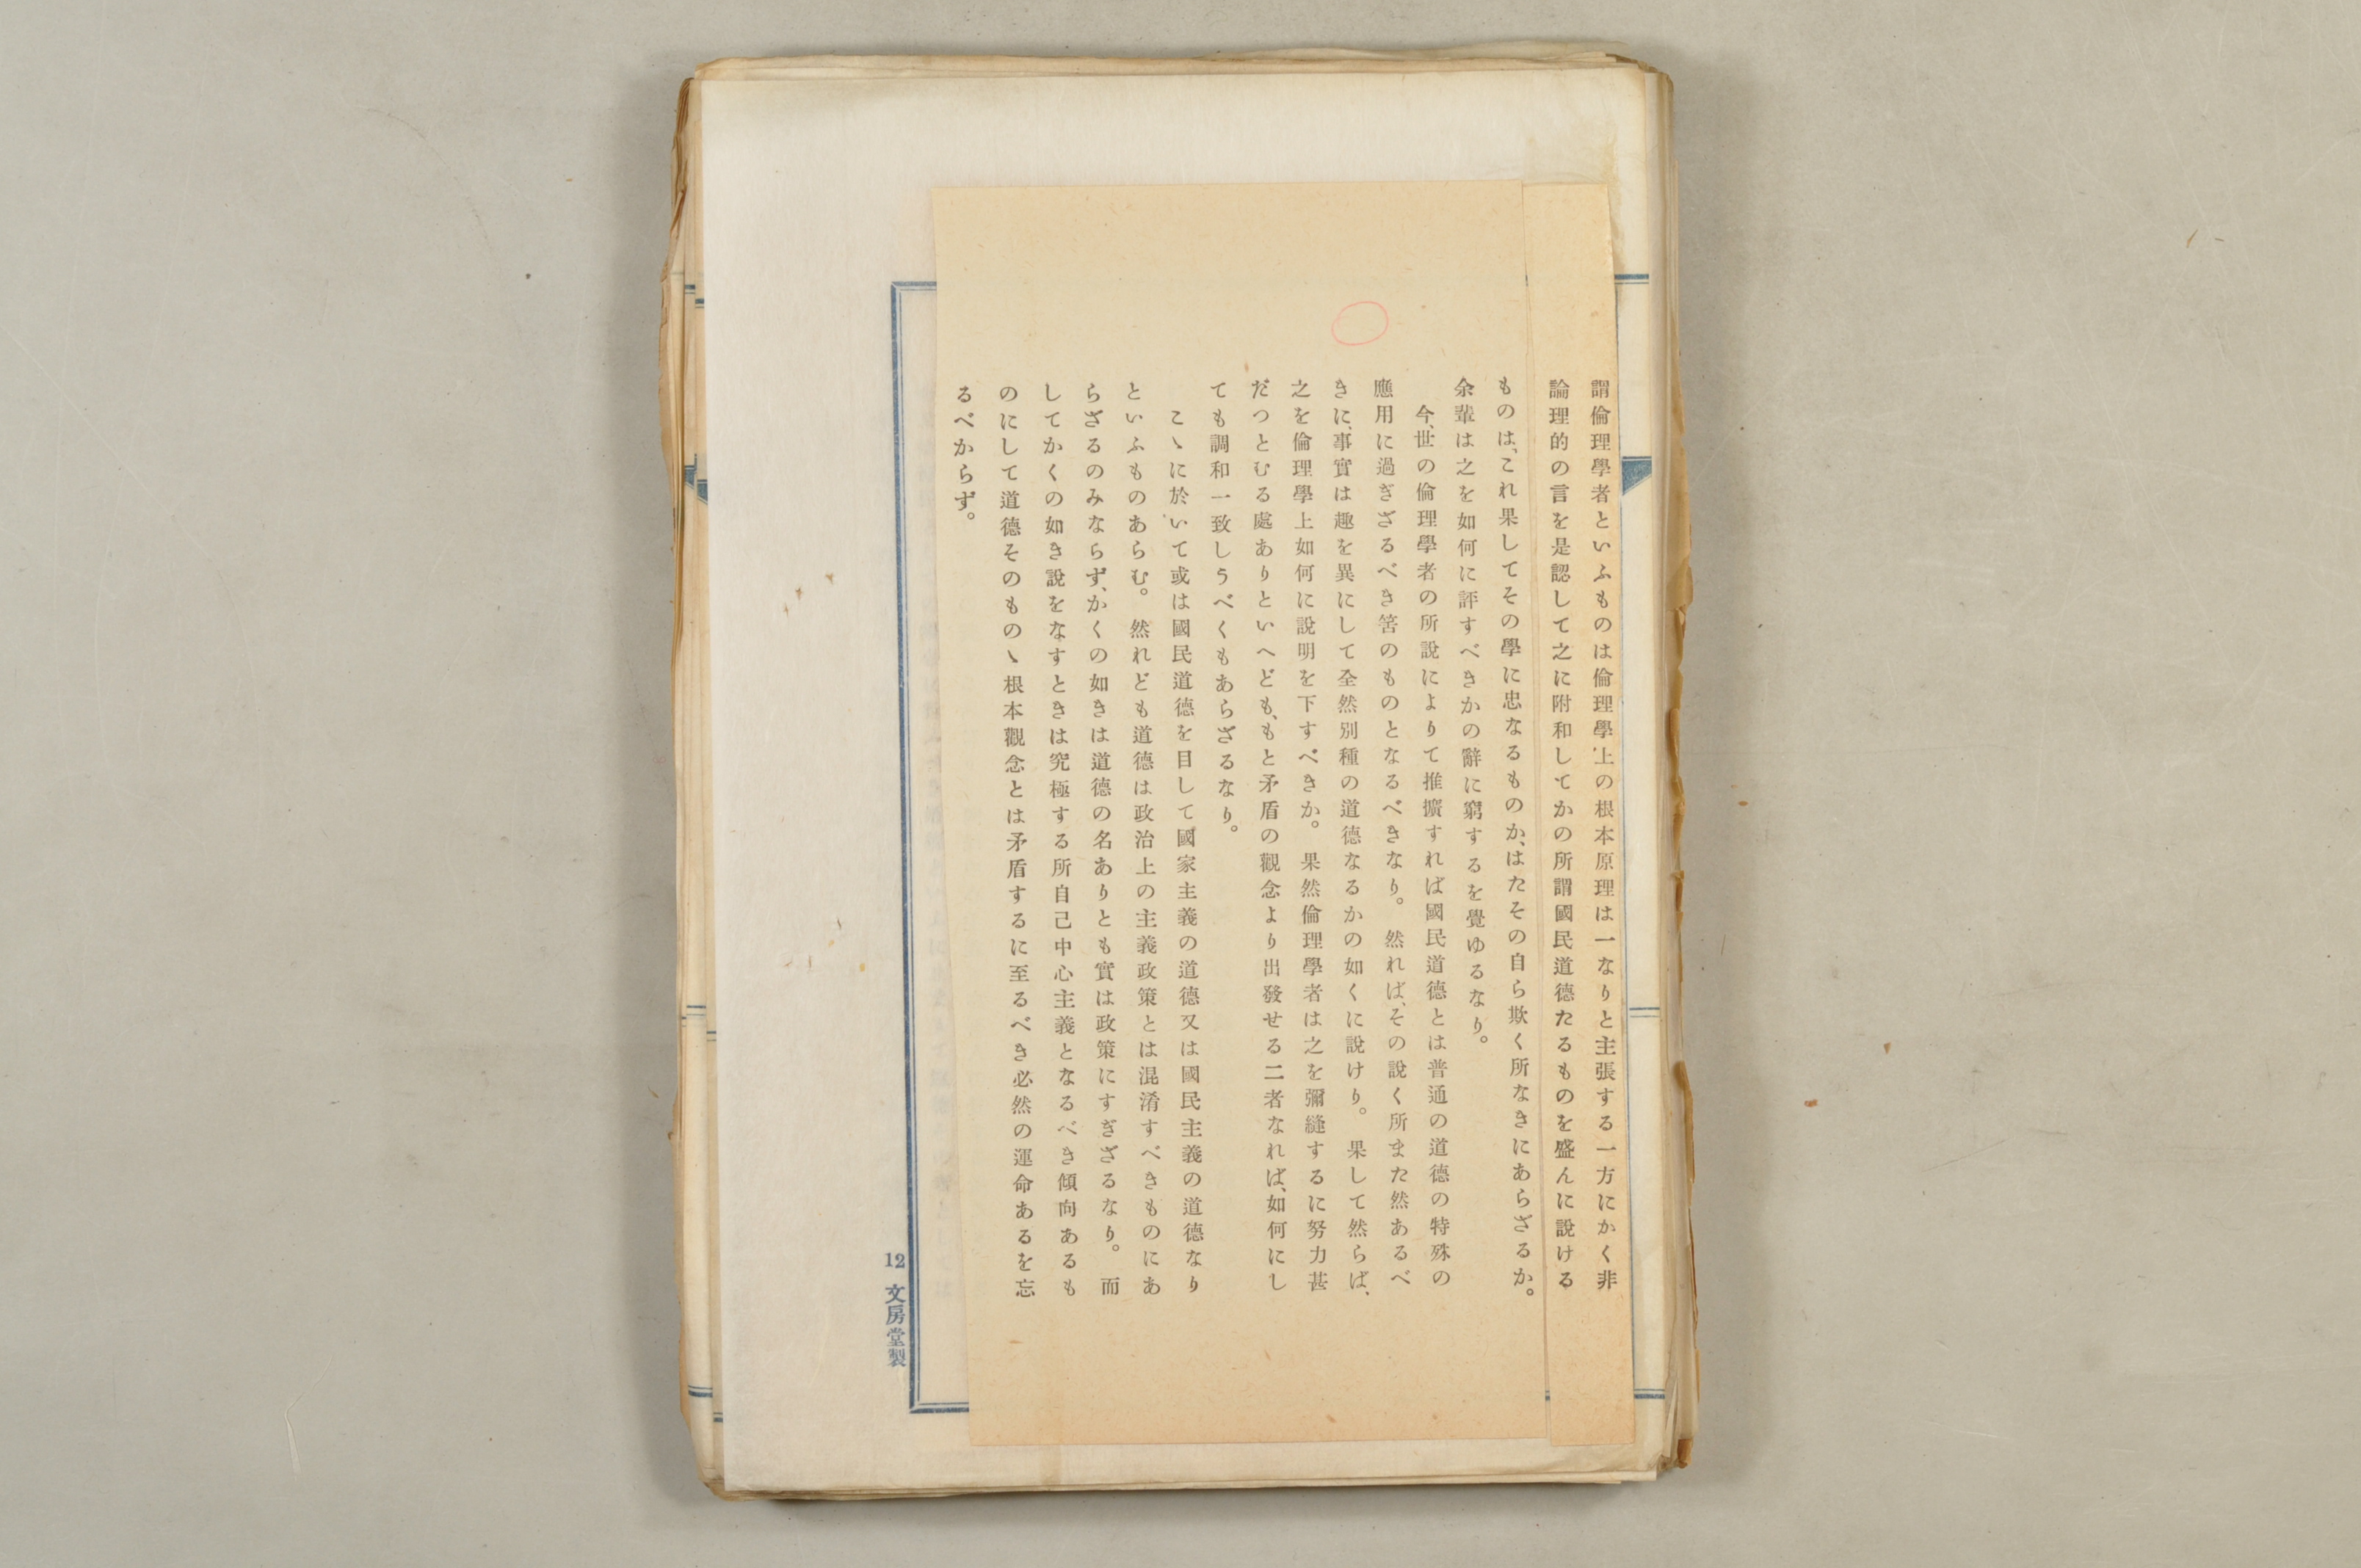 謂倫理學者といふものは倫理學上の根本原理は一なりと主張する一方にかく非
論理的の言を是認して之に附和してかの所謂國民道德たるものを盛んに說ける
ものは、これ果してその學に忠なるものか、はたその自ら欺く所なきにあらざるか。
余輩は之を如何に評すべきかの辭に窮するを覺ゆるなり。
今、世の倫理學者の所說によりて推擴すれば國民道德とは普通の道德の特殊の
應用に過ぎざるべき筈のものとなるべきなり。然れば、その說く所また然あるべ
きに、事實は趣を異にして全然別種の道德なるかの如くに說けり。果して然らば、
之を倫理學上如何に說明を下すべきか。果然倫理學者は之を彌縫するに努力甚
だつとむる處ありといへども、もと矛盾の觀念より出發せる二者なれば、如何にし
ても調和一致しうべくもあらざるなり。
こゝに於いて或は國民道德を目して國家主義の道德又は國民主義の道德なり
といふもののあらむ。然れども道德は政治上の主義政策とは混淆すべきものにあ
らざるのみならず、かくの如きは道德の名ありとも實は政策にすぎざるなり。而
してかくの如き說をなすときは究極する所自己中心主義となるべき傾向あるも
のにして道德そのものゝ根本觀念とは矛盾するに至るべき必然の運命あるを忘
るべからず。
12 文房堂製